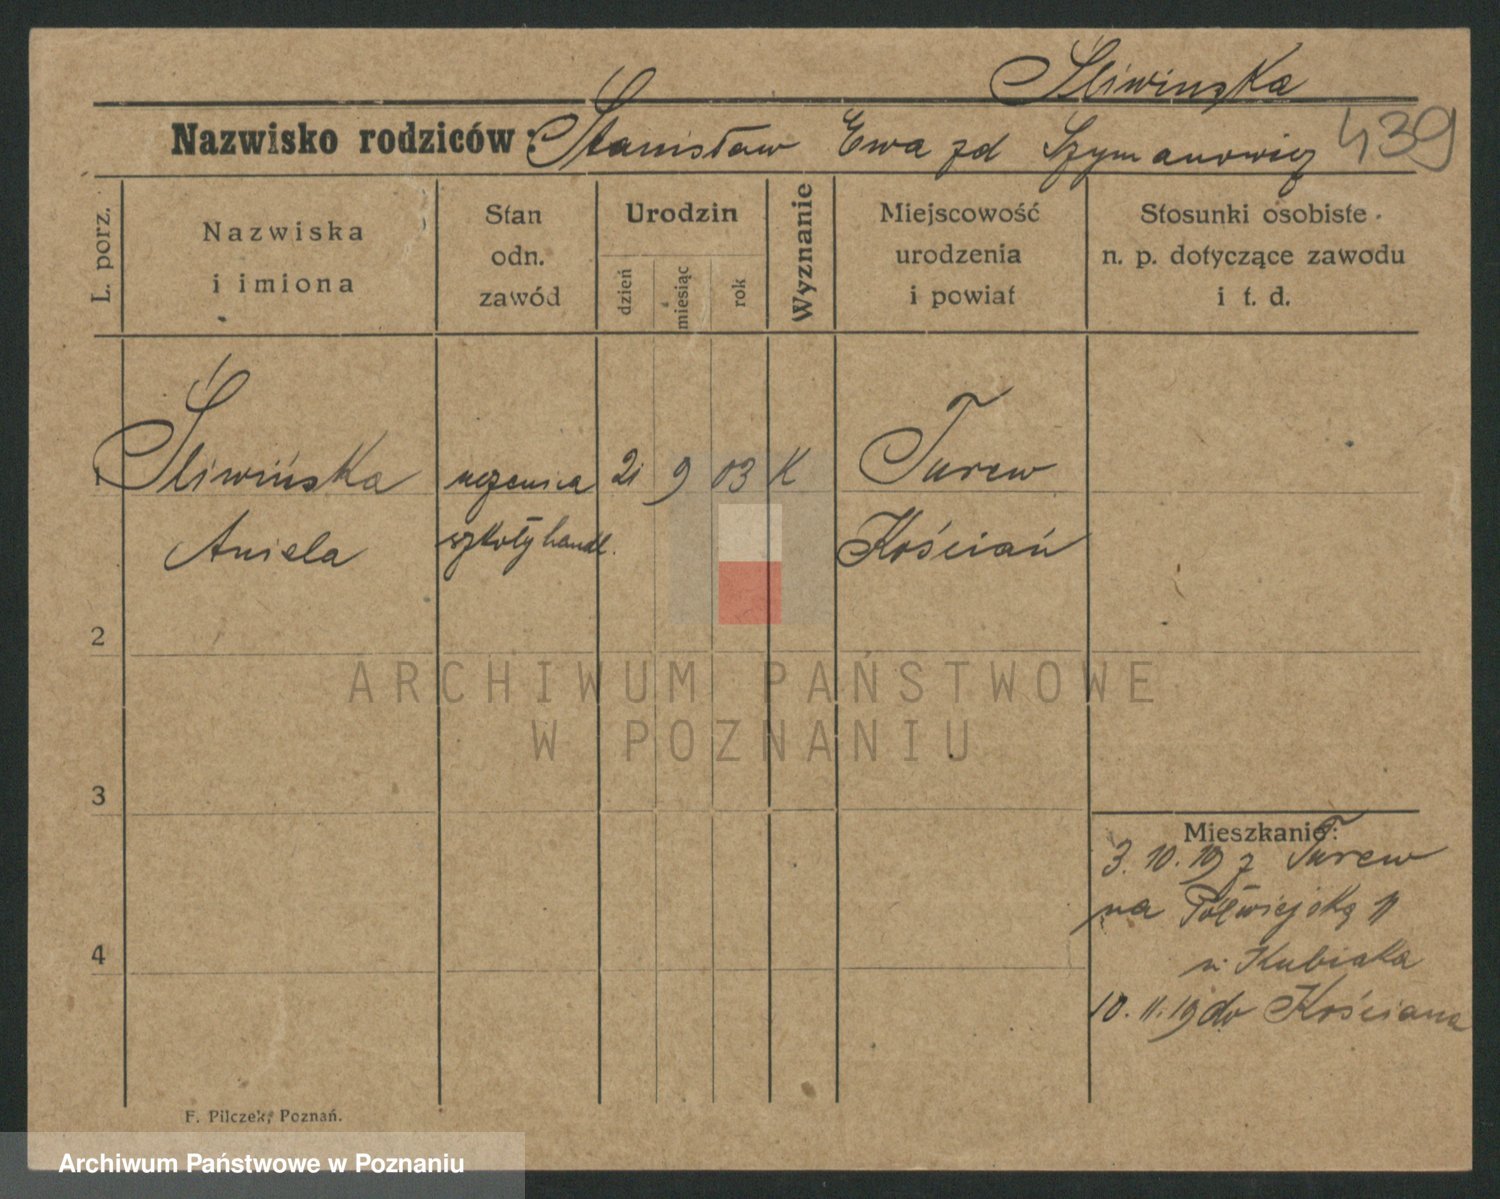 Śliwinska
Nazwisko rodziców: Stanisław Ewa zd Szymanowicz 439
L. porz.
Nazwiska
i imiona
Stan
odn.
zawód
Urodzin
dzień
miesiąc
rok
Wyznanie
Miejscowość
urodzenia
i powiat
Stosunki osobiste
n. p. dotyczące zawodu
i t. d.
1 Śliwińska uczenica 21 9 03 K Turew
Aniela szkoły handl. Kościań
2
3
4
Mieszkanie:
3. 10. 19 z Turew
na Półwiejską 11
u Kubiaka
10. 11. 19 do Kościana
F. Pilczek, Poznań.
ARCHIWUM PAŃSTWOWE
W POZNANIU
Archiwum Państwowe w Poznaniu